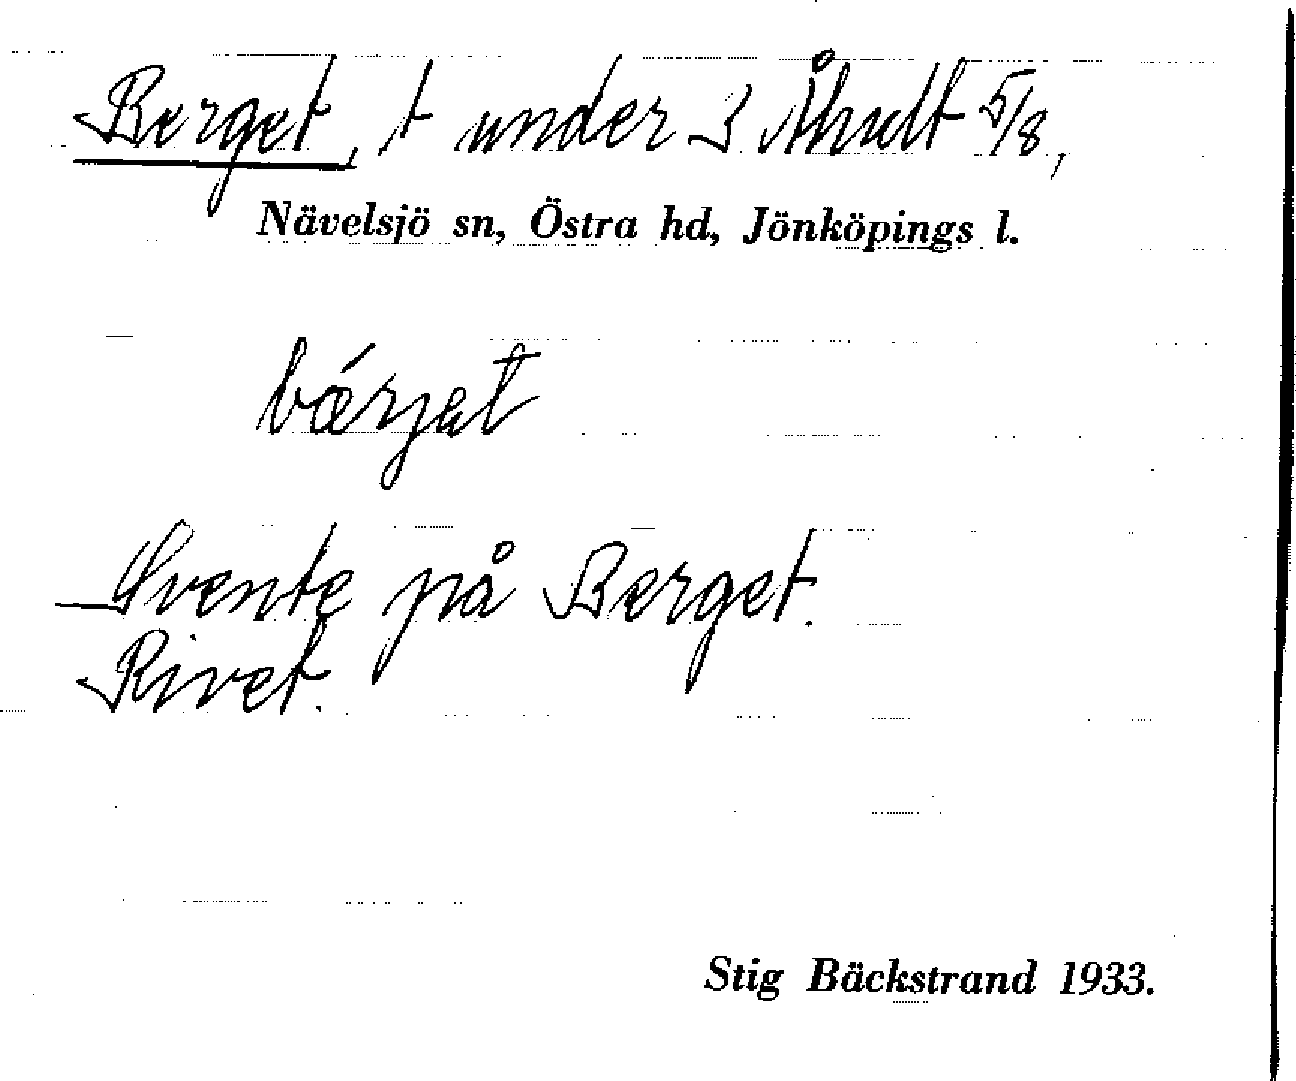 Berget, t under 3 Åhult 5/8,
Nävelsjö sn, Östra hd, Jönköpings l.
bǽrjat
Svente på Berget.
Rivet.
Stig Bäckstrand 1933.